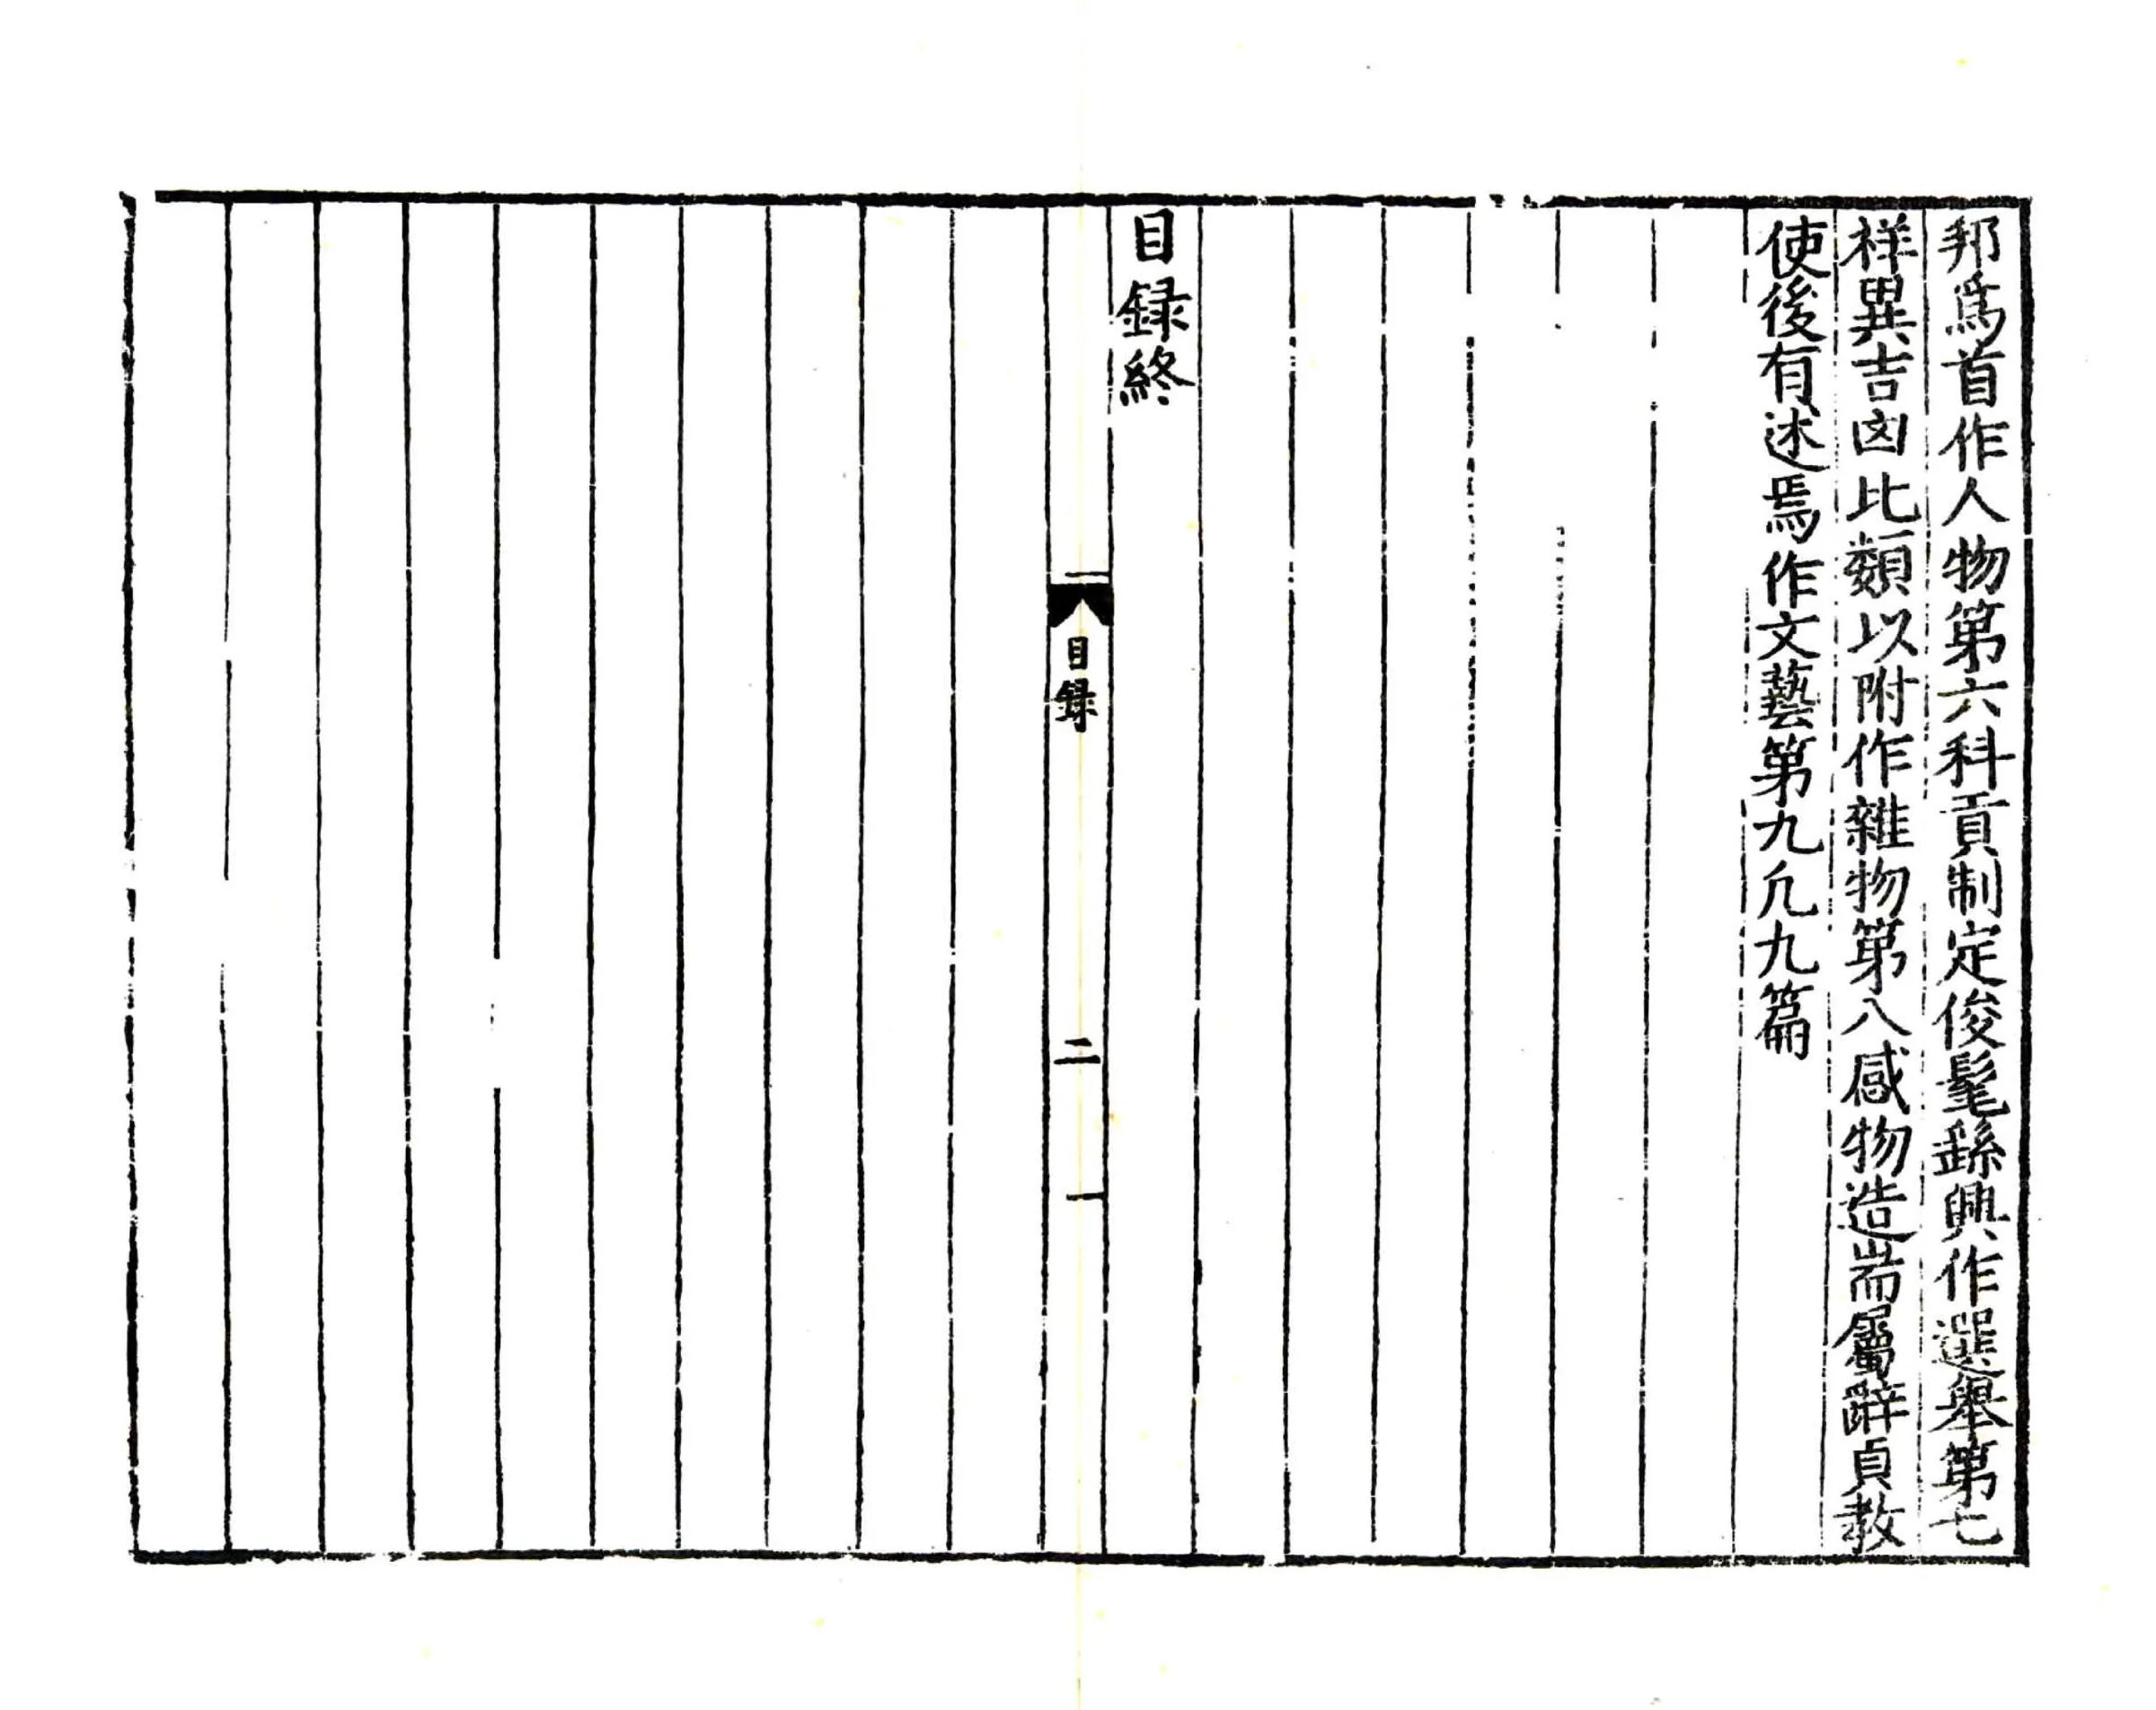 邦爲首作人物第六科貢制定俊髦繇興作選舉第七
祥異吉凶比類以附作雜物第八感物造耑屬辭貞教
使後有述焉作文藝第九凡九篇
目録終
目録
二